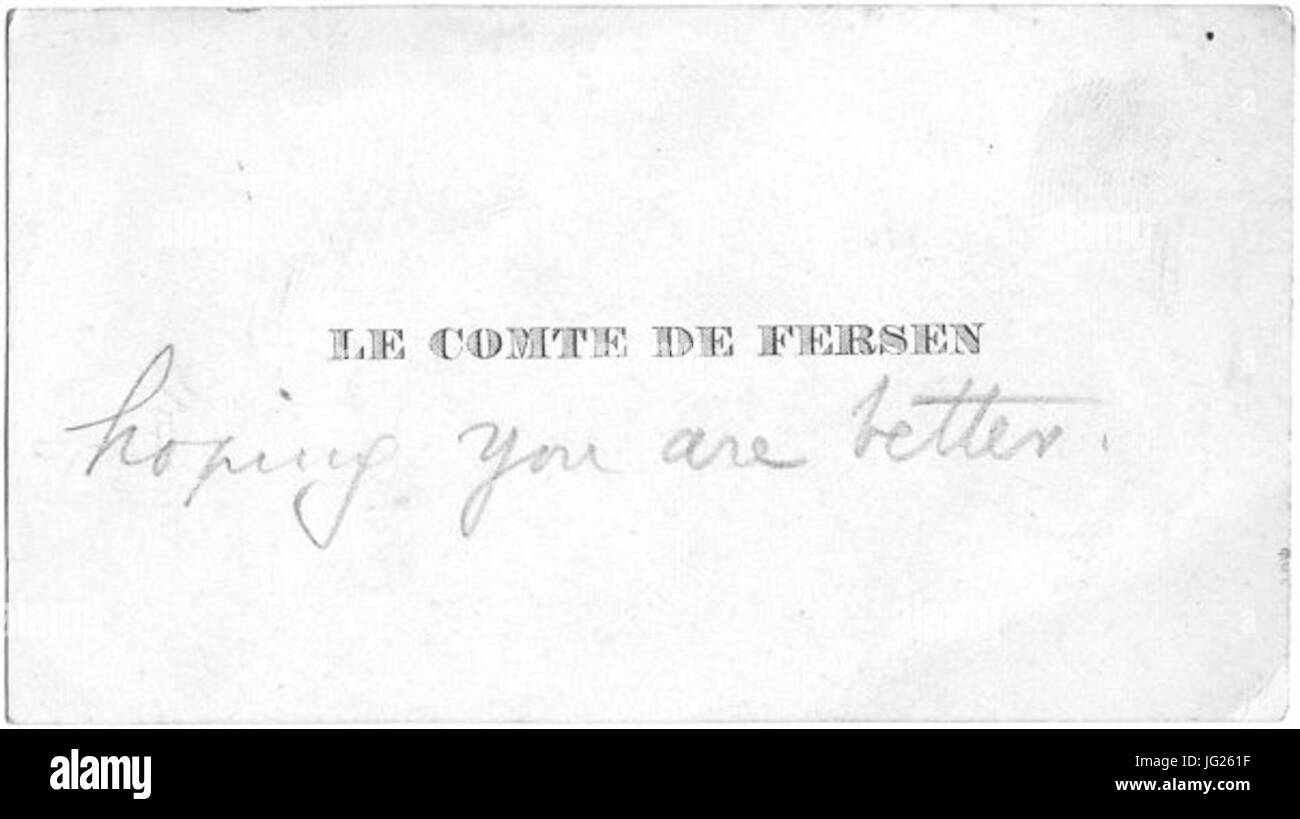 LE COMTE DE FERSEN
hoping you are better.
a
a
a
alamy stock photo
JG261F
www.alamy.com